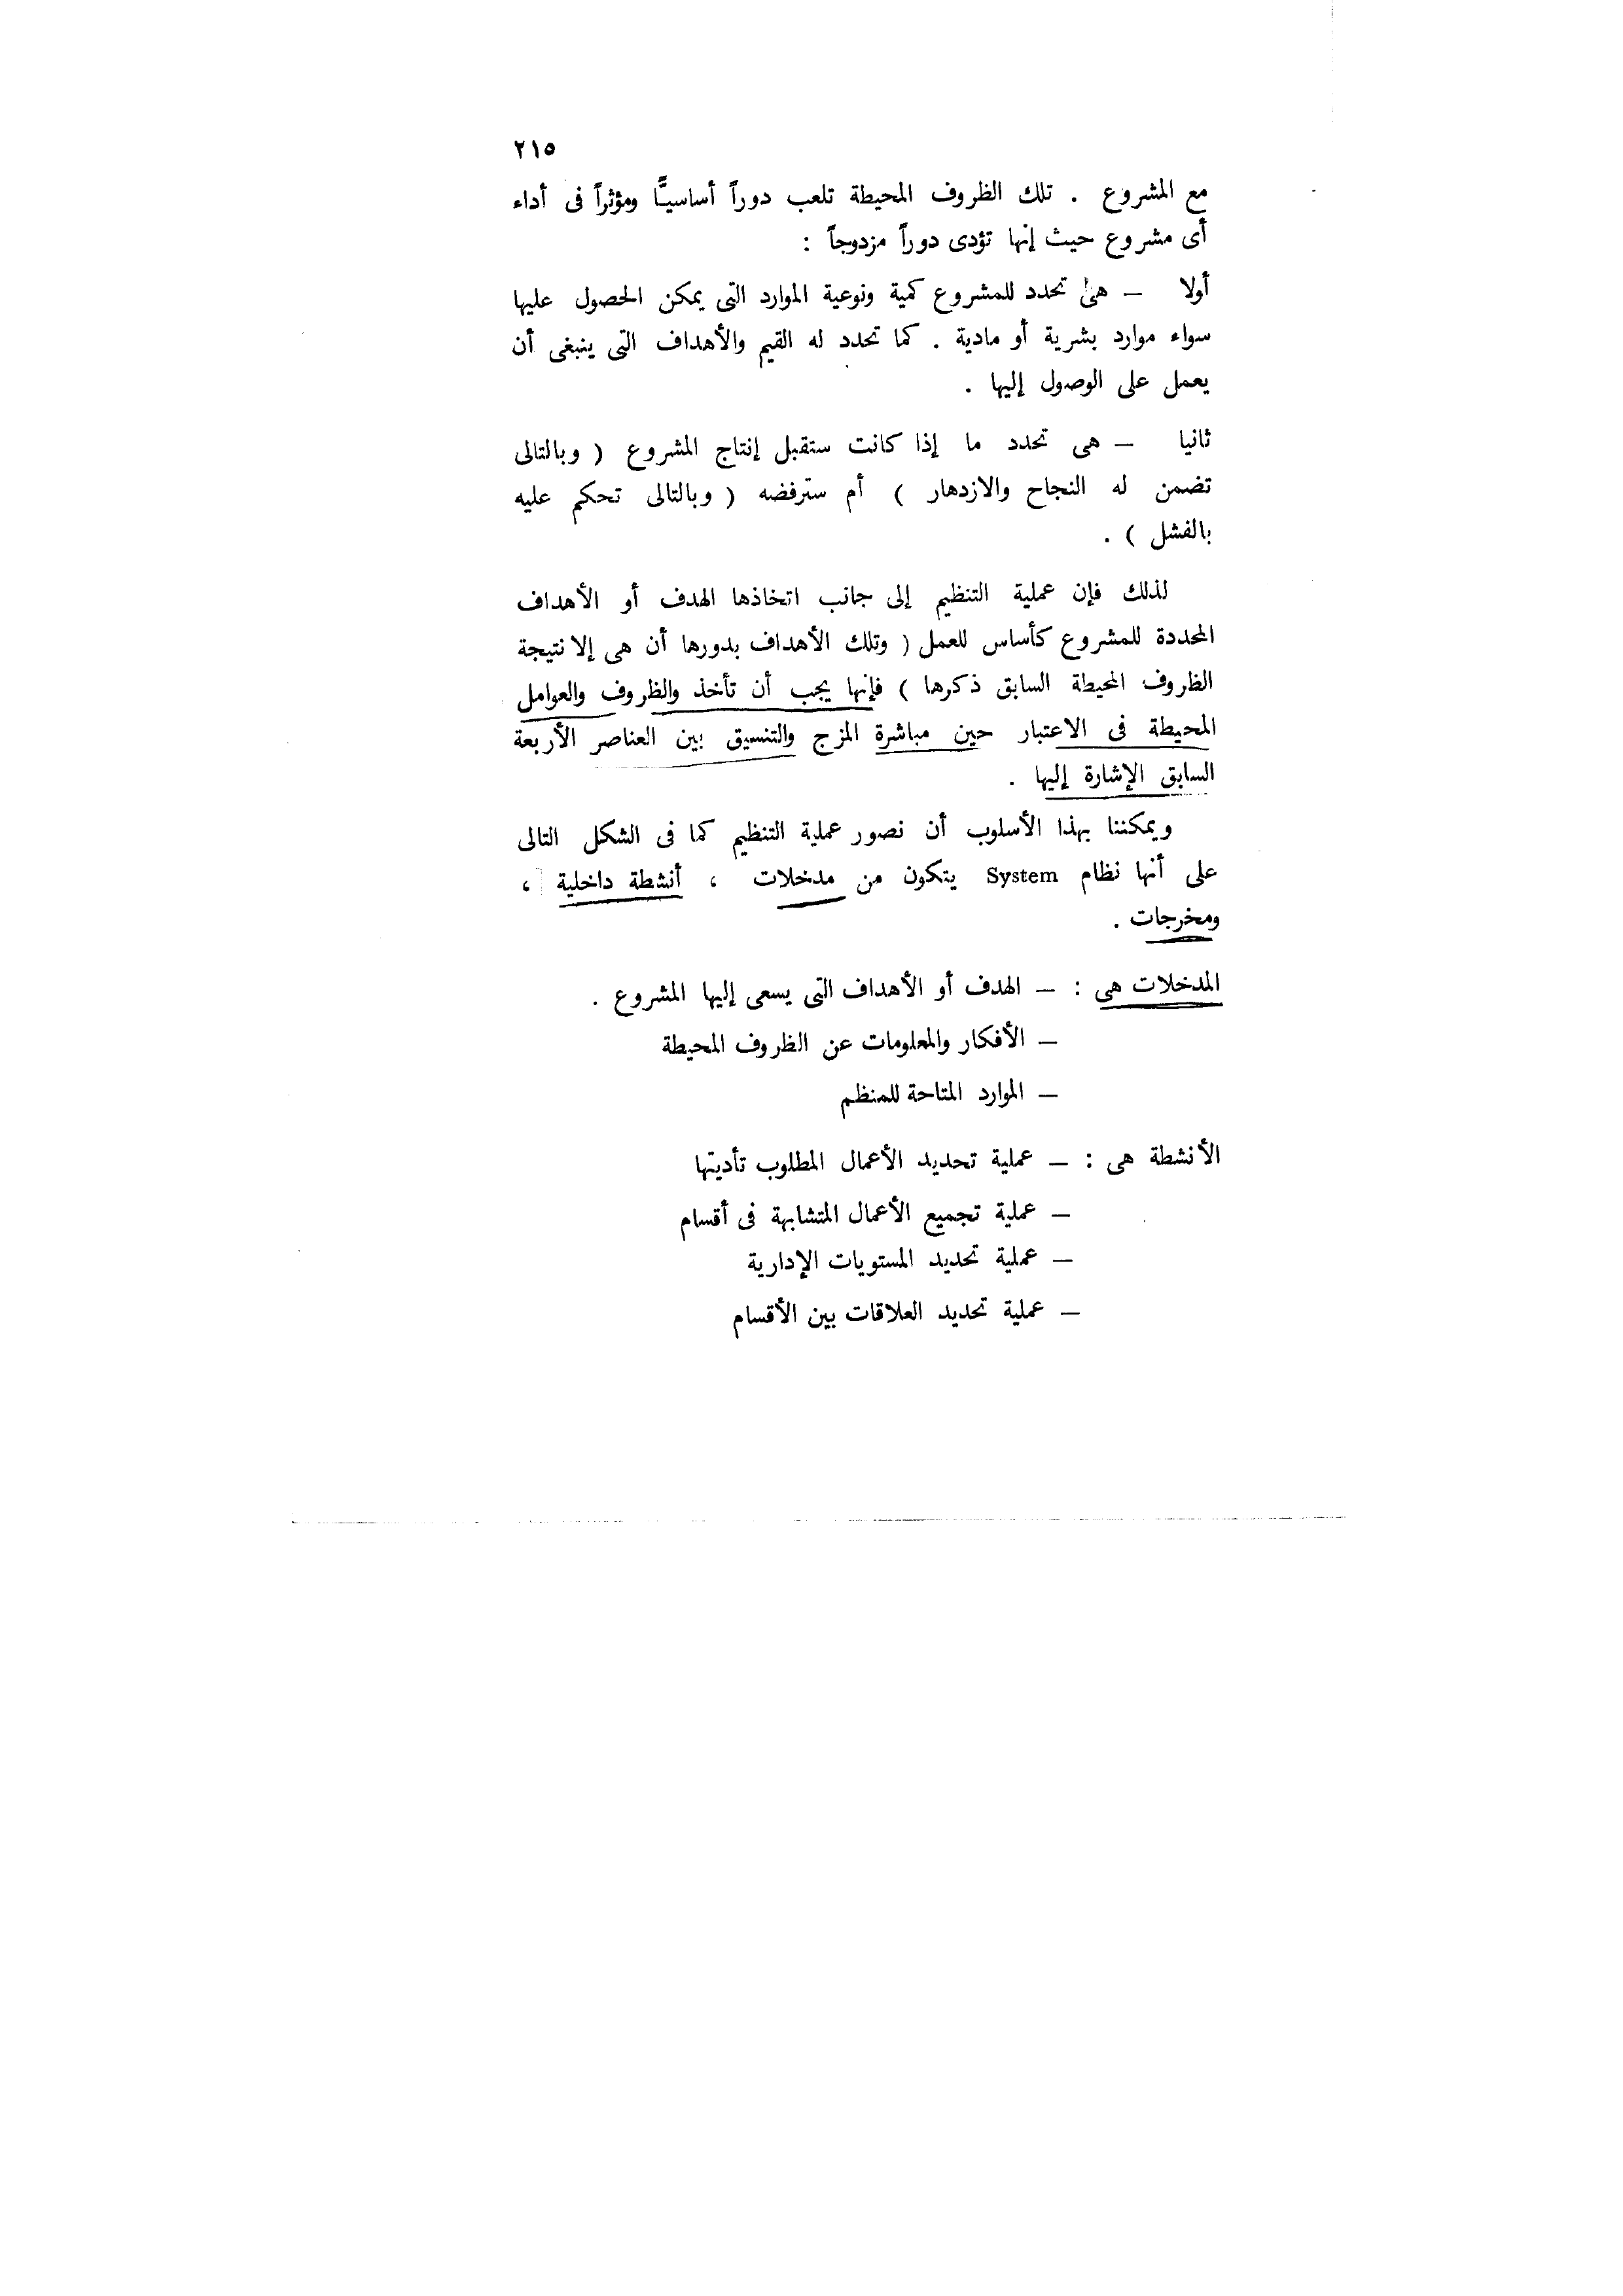 ٢١٥
مع المشروع . تلك الظروف المحيطة تلعب دوراً أساسيًّا ومؤثراً فى أداء
أى مشروع حيث إنها تؤدى دوراً مزدوجاً :
أولا – هى تحدد للمشروع كمية ونوعية الموارد التى يمكن الحصول عليها
سواء موارد بشرية أو مادية . كما تحدد له القيم والأهداف التى ينبغى أن
يعمل على الوصول إليها .
ثانيا – هى تحدد ما إذا كانت ستقبل إنتاج المشروع ( وبالتالى
تضمن له النجاح والازدهار ) أم سترفضه ( وبالتالى تحكم عليه
بالفشل ) .
لذلك فإن عملية التنظيم إلى جانب اتخاذها الهدف أو الأهداف
المحددة للمشروع كأساس للعمل ( وتلك الأهداف بدورها أن هى إلا نتيجة
الظروف المحيطة السابق ذكرها ) فإنها يجب أن تأخذ والظروف والعوامل
المحيطة فى الاعتبار حين مباشرة المزج والتنسيق بين العناصر الأربعة
السابق الإشارة إليها .
ويمكننا بهذا الأسلوب أن نصور عملية التنظيم كما فى الشكل التالى
على أنها نظام System يتكون من مدخلات ، أنشطة داخلية ،
ومخرجات .
المدخلات هى : – الهدف أو الأهداف التى يسعى إليها المشروع .
– الأفكار والمعلومات عن الظروف المحيطة
– الموارد المتاحة للمنظم
الأنشطة هى : – عملية تحديد الأعمال المطلوب تأديتها
– عملية تجميع الأعمال المتشابهة فى أقسام
– عملية تحديد المستويات الإدارية
– عملية تحديد العلاقات بين الأقسام